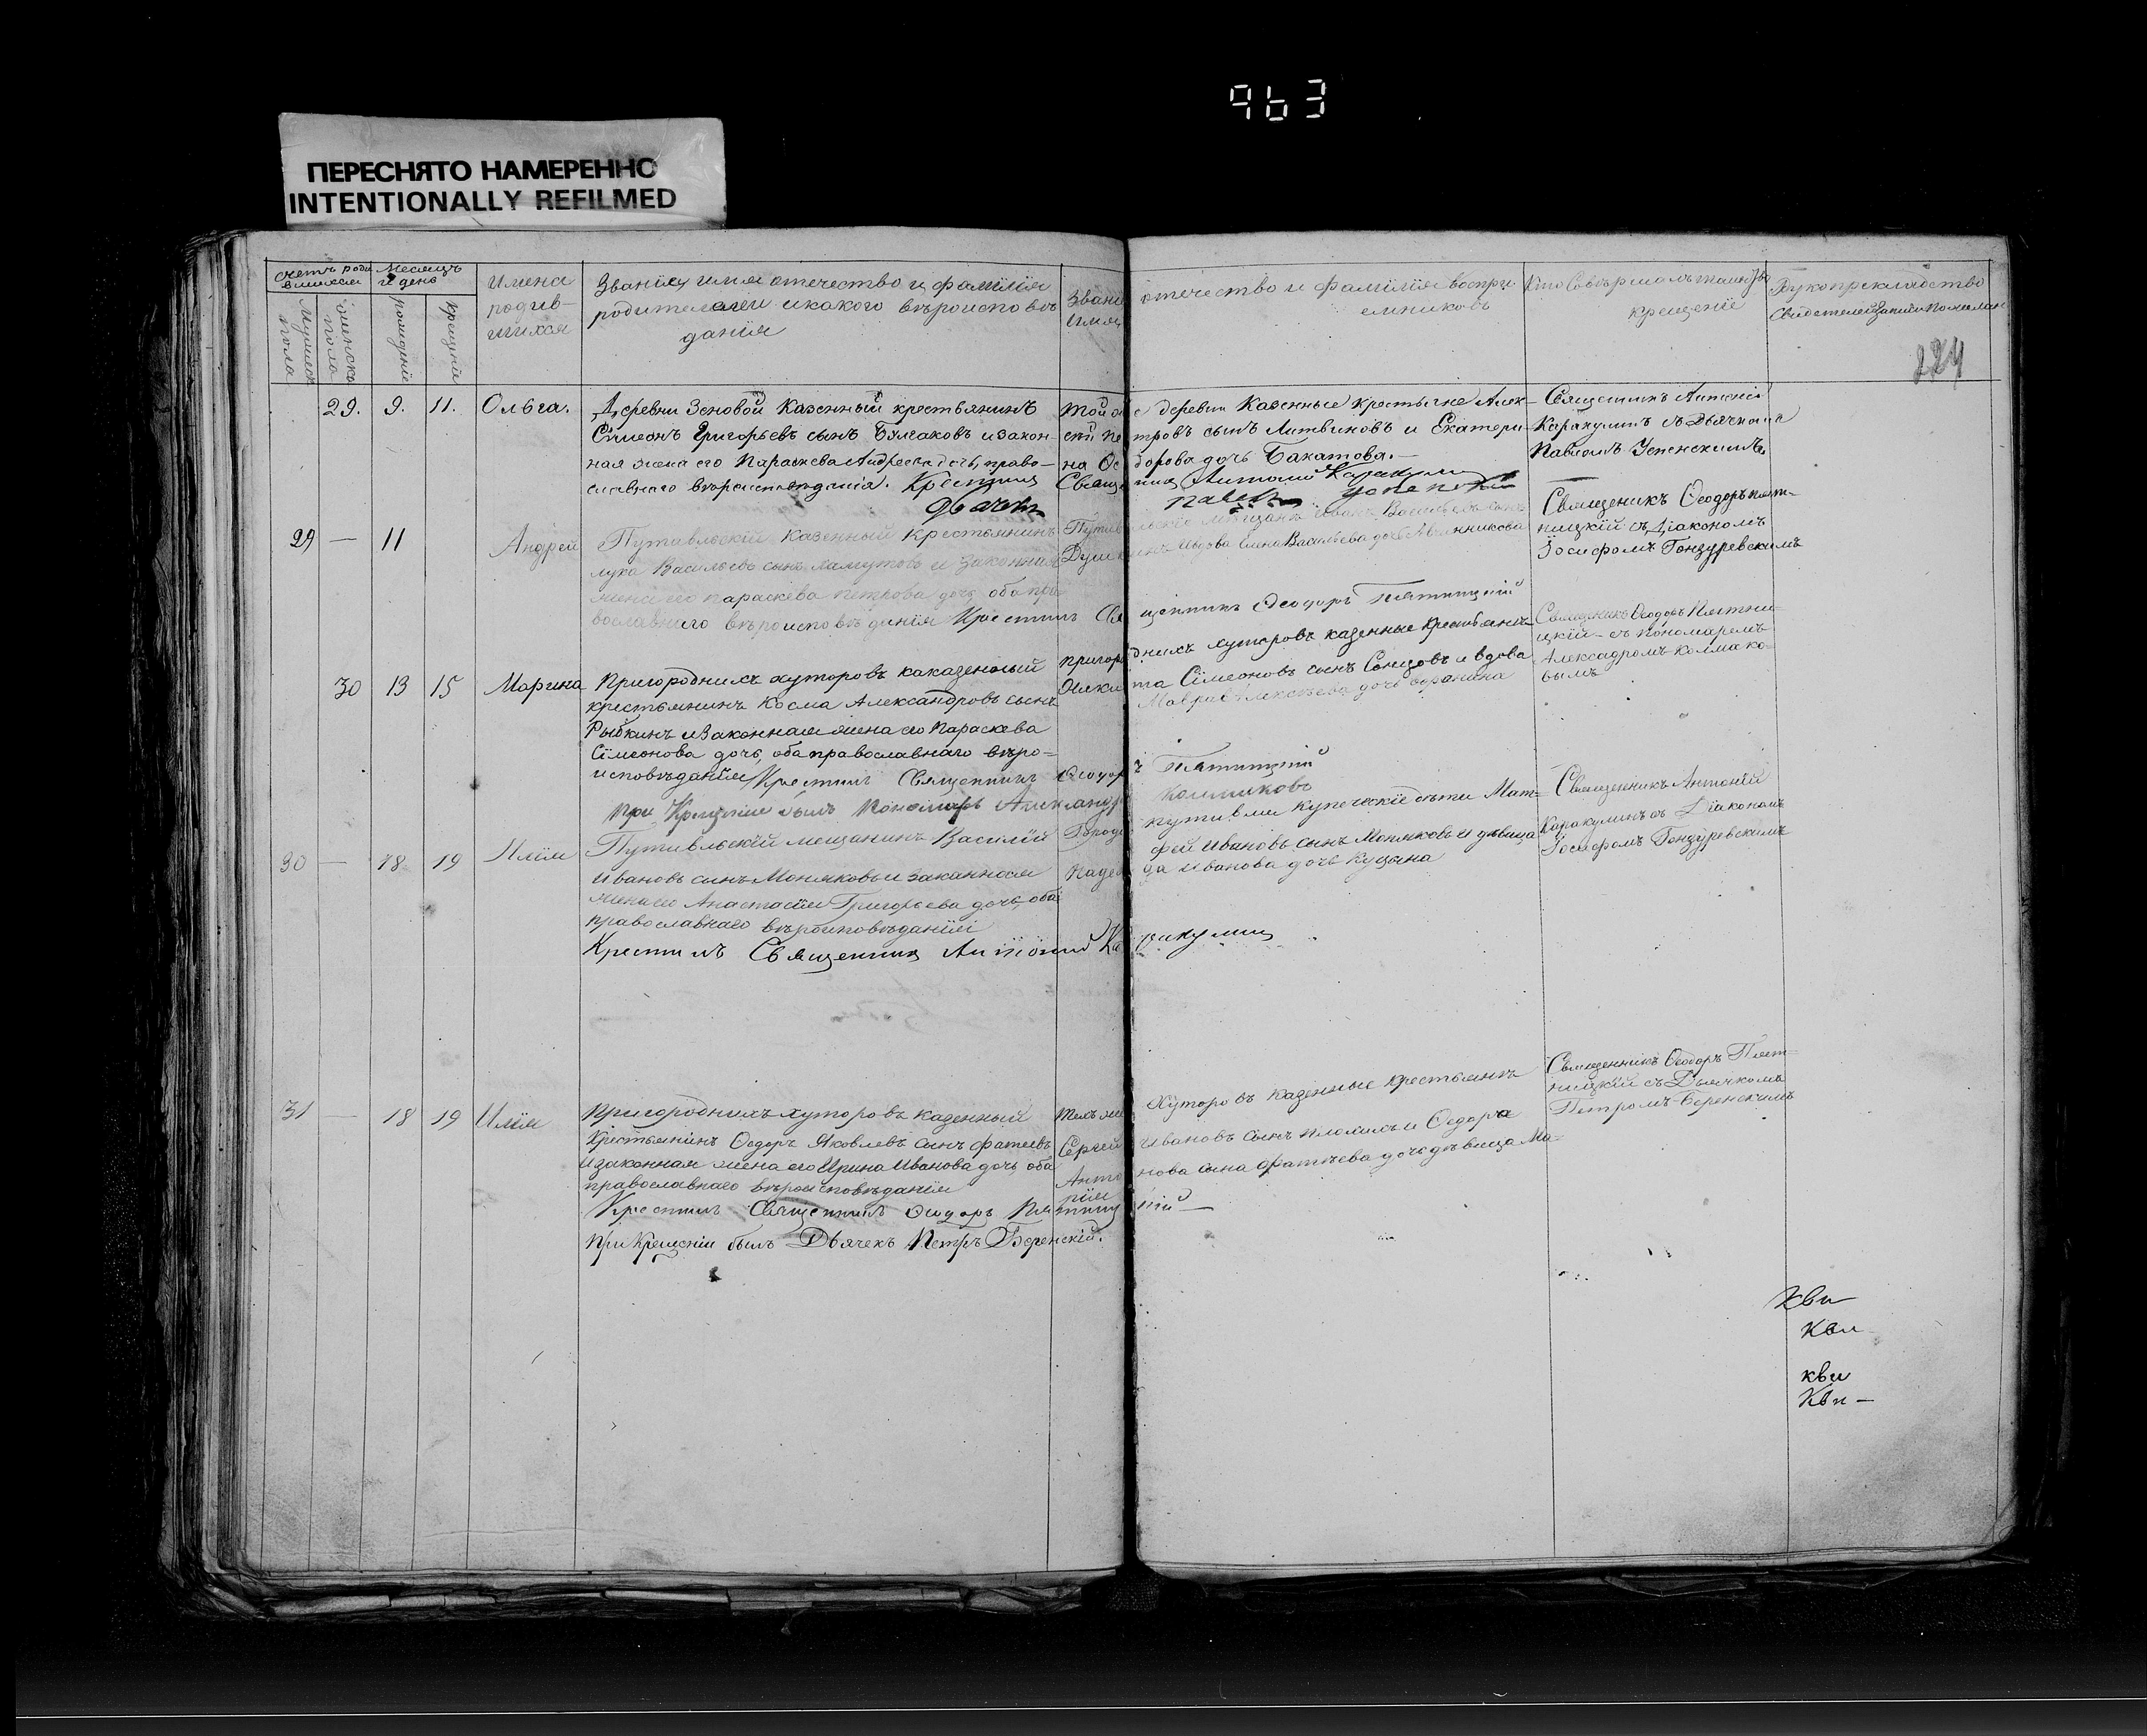 963
ПЕРЕСНЯТО НАМЕРЕННО
INTENTIONALLY REFILMED
224
Счетъ роди
вшихся
Месяцъ
и день
Мужеск
пола
женскъ
пола
рожденіе
крещеніе
Имена
родив-
шихся
Званіе имя отечество и фамилія
родителей и какого вѣроисповѣ
данія
Звані
Имя
отечество и фамилія воспрі
емниковъ
Кто Совѣршалъ таинство
крещеніе
Рукоприкладство
Свидетелей Записи Пожелан
29. 9. 11. Ольга.
Деревни Зеновой Казенный крестьянинъ
Симеонъ Григорьевъ сынъ Булгаковъ и закон-
ная жена его Параскева Андреева дочь, право-
славнаго вѣроисповѣданія. Крестилъ
Дьячекъ
е деревни Казенные крестьяне Алек-
тровъ сынъ Литвиновъ и Екатери-
дорова дочь Бакатова.-
Антоній Каракулинъ
Павелъ Успенскій
Священникъ Антоній
Каракулинъ съ Дьячкомъ
Павломъ Успенскимъ.
29 — 11 Андрей
Путивльскій казенный крестьянинъ
лука Васильевъ сынъ и законная
жена его параскева петрова дочь, оба пра
вославнаго вѣроисповѣданія Крестилъ Свя
Путив
Душ
вдова Елена Васильева дочь
щенникъ Ѳеодоръ Пятницкій
Священикъ Ѳеодоръ пят-
ницкій съ Діакономъ
Іосифомъ Гонзуревскимъ
30 13 15 Марина
Пригороднихъ хуторовъ каказеный
крестьянинъ Косма Александровъ сынъ
Рыбкинъ и законная жена его Параскева
Симеонова дочь, оба православнаго вѣро-
исповѣданія Крестилъ Священникъ Ѳеодор
при Крещеніе былъ Пономарь Александр
пригоро
днихъ хуторовъ казенные крестьянъ
та Симеоновъ сынъ Сонцовъ и вдова
Мавра Алексѣева дочь
ъ Пятницкій
Колмаковъ
Священикъ Ѳеодоръ Пятни-
цкій - съ пономаремъ
Александромъ Колмако-
вымъ
30 — 18 19 Илія
Путивльскій мещанинъ Василій
Ивановъ сынъ Моняковъ и законная
жена его Анастасія Григорьева дочь, оба
православнаго вѣроисповѣданія
Крестилъ Священникъ Антоній Ка
Городи
Надеж
путивли купеческіе дѣти Мат-
фей Ивановъ сынъ Моняковъ и дѣвица
да Иванова дочь Куцына
ракулинъ
Священникъ Антоній
Каракулинъ съ Діакономъ
Іосифомъ Гонзуревскимъ
31 — 18 19 Илія
Пригороднихъ хуторовъ казенный
Крестьянинъ Ѳедоръ Яковлевъ сынъ фатеевъ
и законная жена его Ирина Иванова дочь, оба
православнаго вѣроисповѣданія
Крестилъ Священникъ Ѳеодоръ Пятниц
При Крещеніи былъ Дьячекъ Петръ Веренскій.
Техъ же
Сергей
Анто
рія
Хуторовъ казенные крестьянъ
Ивановъ сынъ и Ѳедора
нова сына Фатѣева дочь дѣвица Ма-
кій —
Священникъ Ѳеодоръ Пят-
ницкій съ Дьячкомъ
Петромъ Веренскимъ
Кви
Кви
кви
Кви —